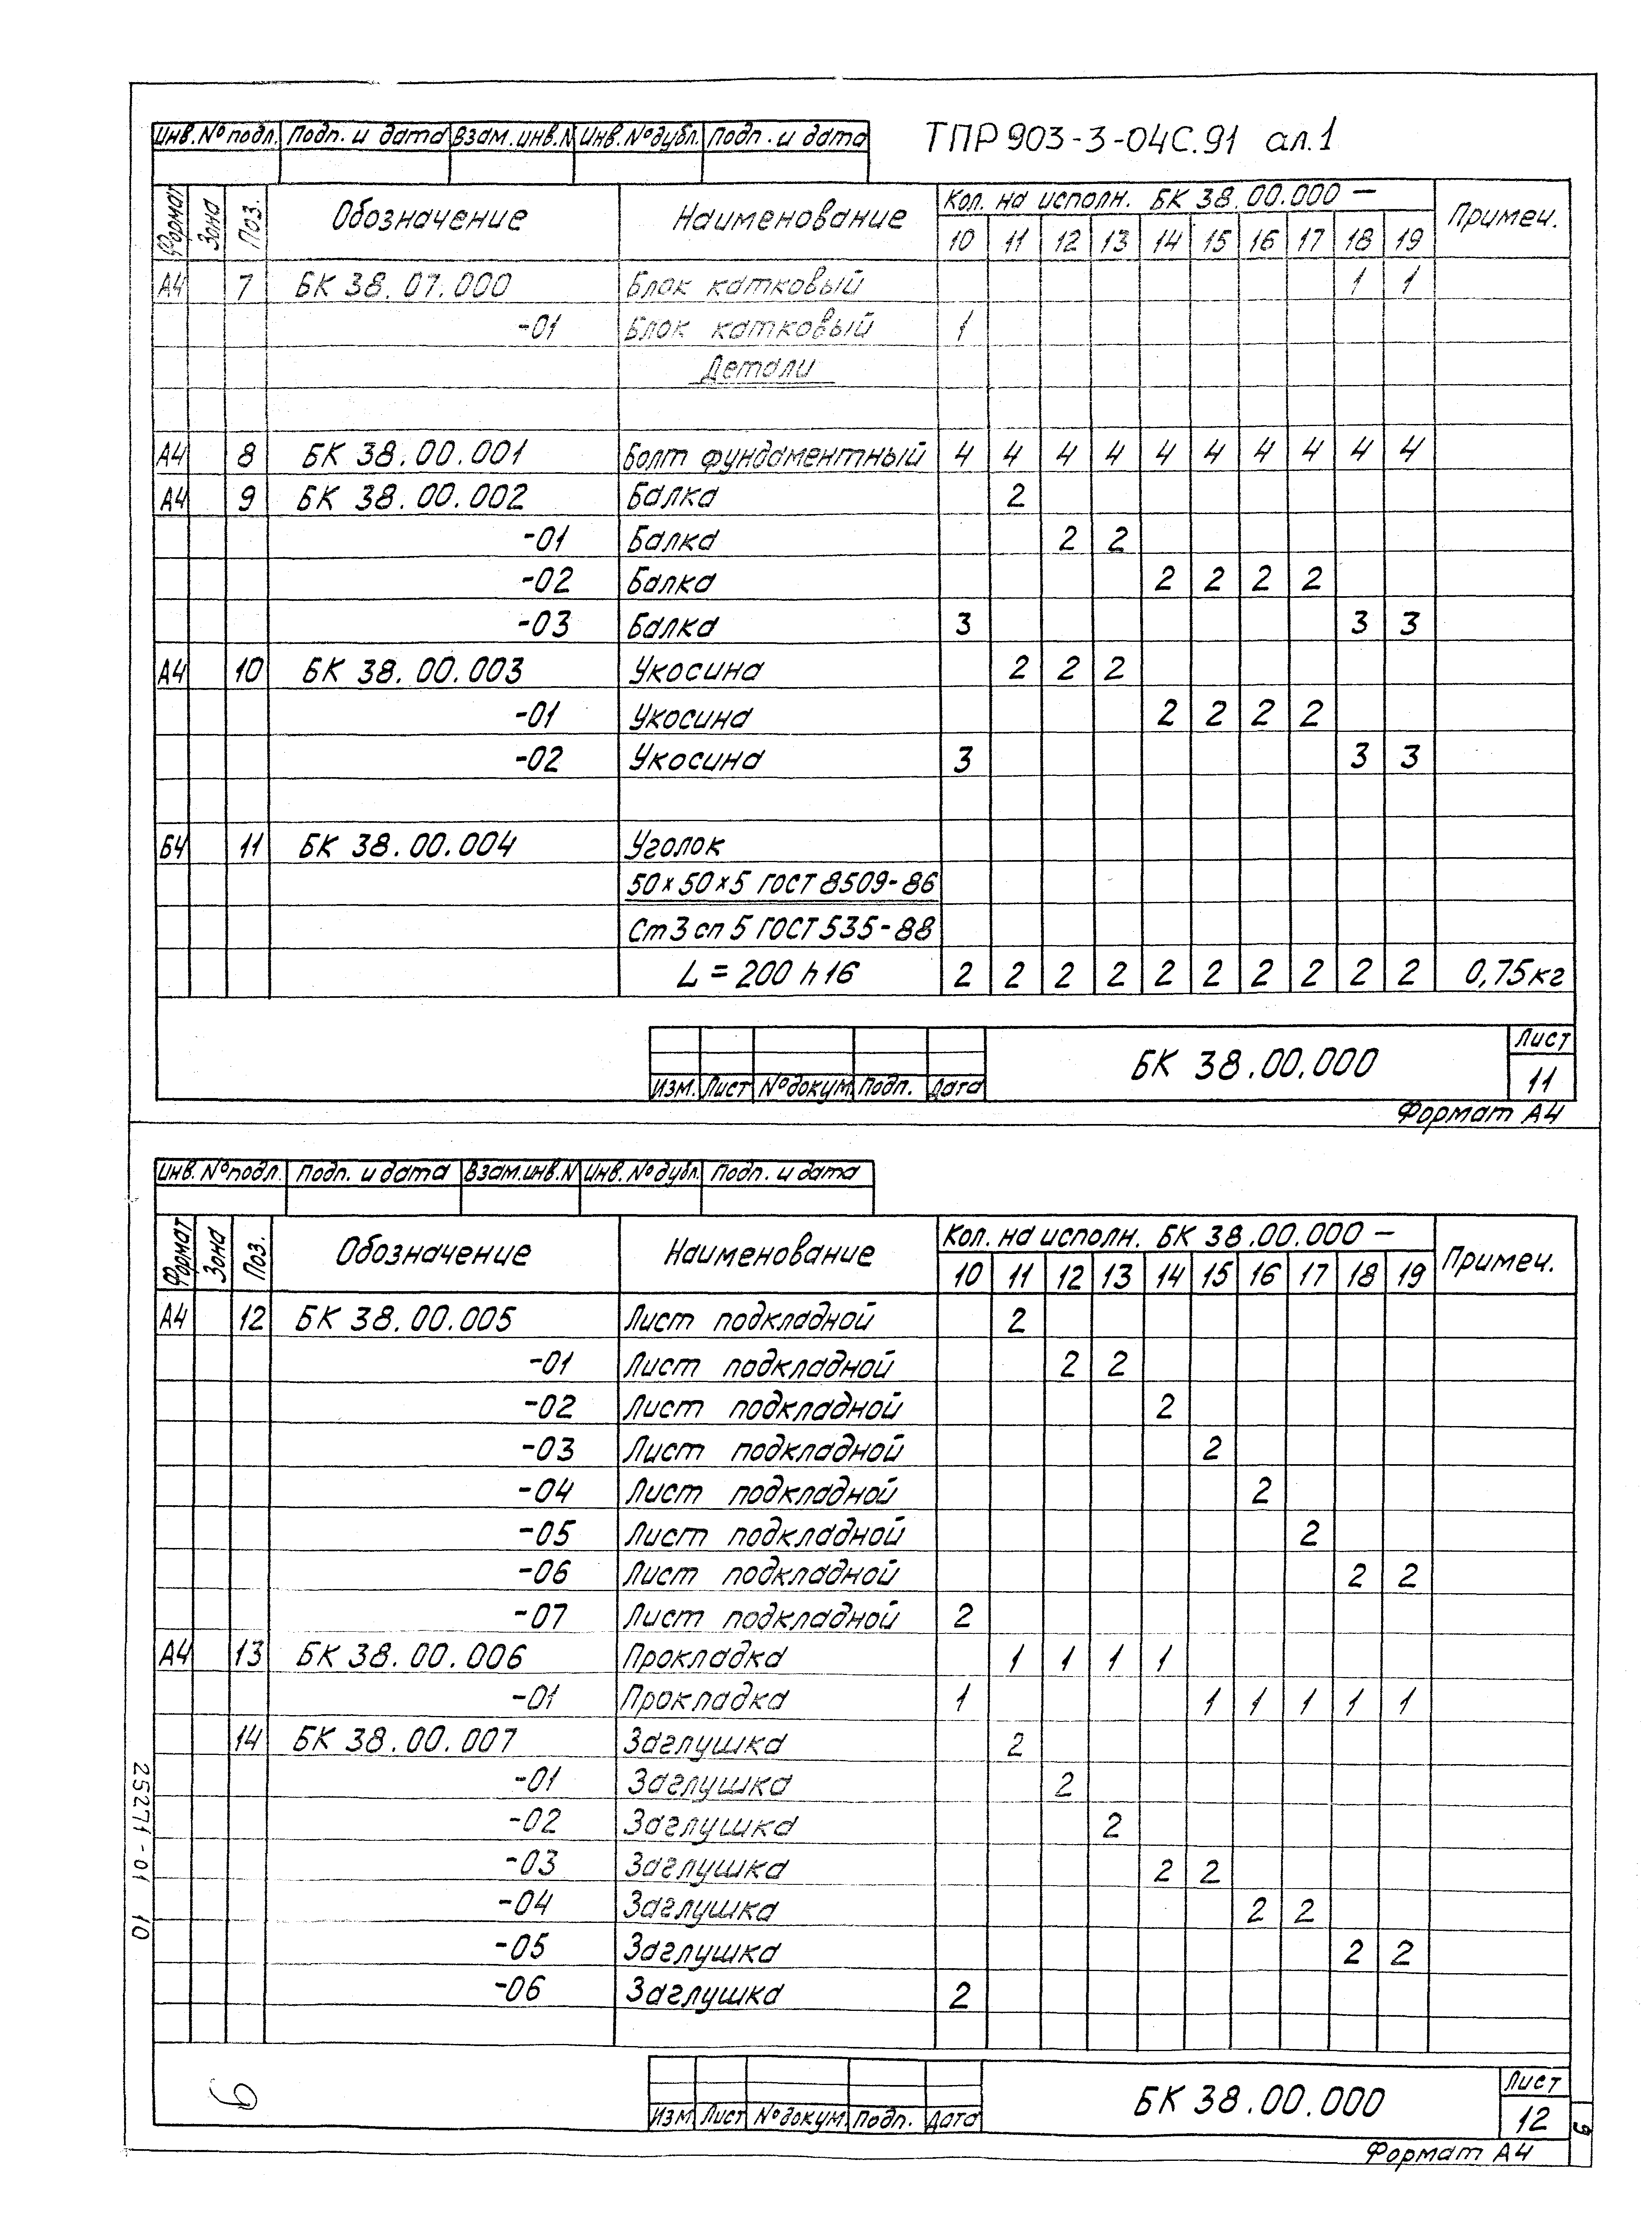 ТПР 903-3-04С.91 ал.1
Инв.№ подл. Подп. и дата Взам.инв.N Инв.№дубл. Подп. и дата
Формат Зона Поз. Обозначение Наименование Кол. на исполн. БК 38.00.000 — Примеч.
10 11 12 13 14 15 16 17 18 19
А4 7 БК 38.07.000 Блок катковый 1 1
-01 Блок катковый 1
Детали
А4 8 БК 38.00.001 Болт фундаментный 4 4 4 4 4 4 4 4 4 4
А4 9 БК 38.00.002 Балка 2
-01 Балка 2 2
-02 Балка 2 2 2 2
-03 Балка 3 3 3
А4 10 БК 38.00.003 Укосина 2 2 2
-01 Укосина 2 2 2 2
-02 Укосина 3 3 3
Б4 11 БК 38.00.004 Уголок
50×50×5 ГОСТ 8509-86
Ст3сп5 ГОСТ 535-88
L = 200 h16 2 2 2 2 2 2 2 2 2 2 0,75кг
Изм. Лист №докум. Подп. Дата БК 38.00.000 Лист
11
Формат А4
Инв. №подл. Подп. и дата Взам.инв.N Инв. №дубл. Подп. и дата
Формат Зона Поз. Обозначение Наименование Кол. на исполн. БК 38.00.000 — Примеч.
10 11 12 13 14 15 16 17 18 19
А4 12 БК 38.00.005 Лист подкладной 2
-01 Лист подкладной 2 2
-02 Лист подкладной 2
-03 Лист подкладной 2
-04 Лист подкладной 2
-05 Лист подкладной 2
-06 Лист подкладной 2 2
-07 Лист подкладной 2
А4 13 БК 38.00.006 Прокладка 1 1 1 1
-01 Прокладка 1 1 1 1 1 1
14 БК 38.00.007 Заглушка 2
-01 Заглушка 2
-02 Заглушка 2
-03 Заглушка 2 2
-04 Заглушка 2 2
-05 Заглушка 2 2
-06 Заглушка 2
Изм. Лист №докум. Подп. Дата БК 38.00.000 Лист
12
Формат А4
25271-01 10
9
9